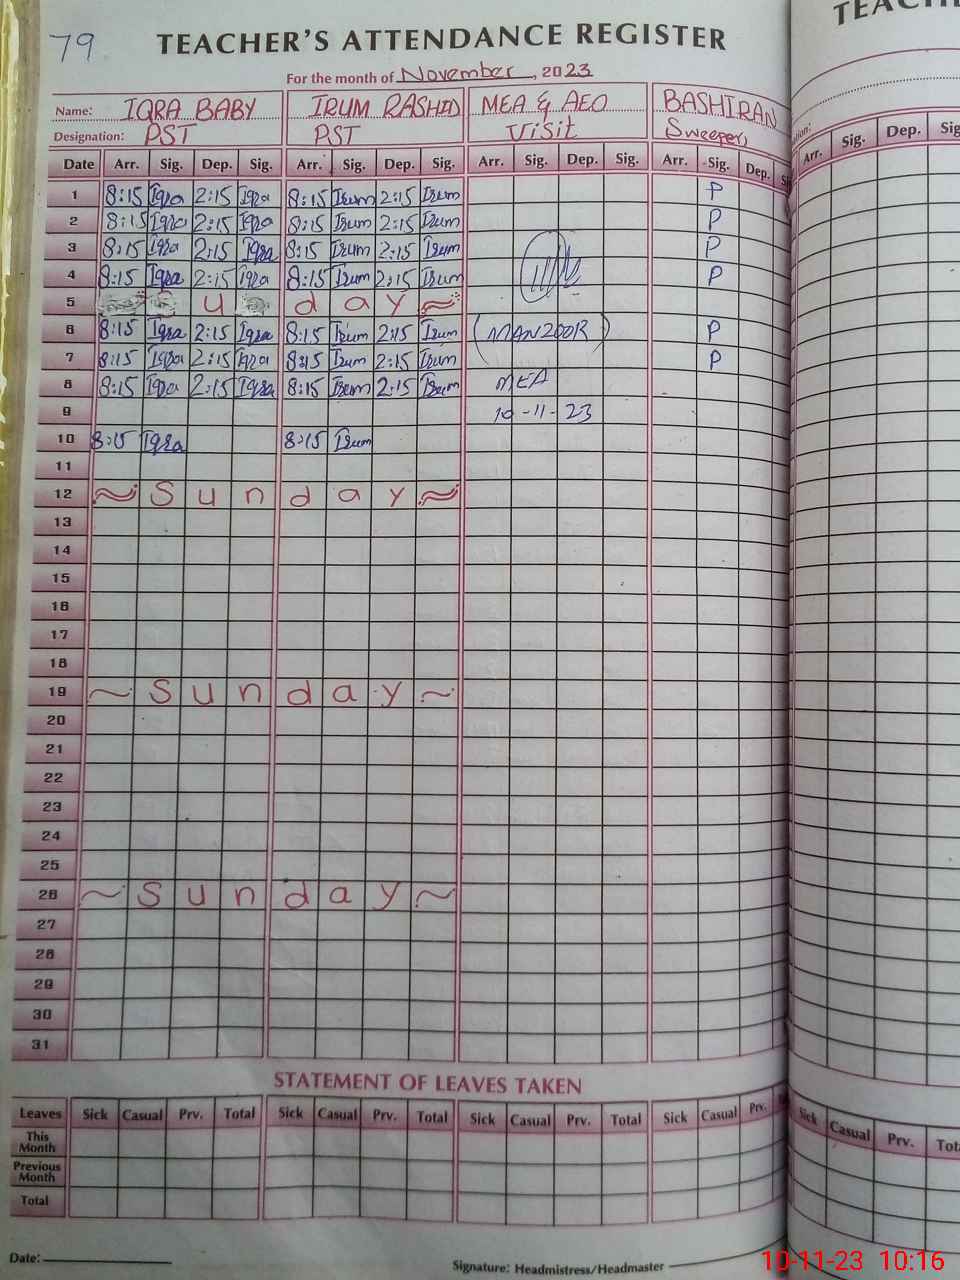 79
TEACHER'S ATTENDANCE REGISTER
TEACH
For the month of November, 2023
Name: IQRA BABY IRUM RASHID MEA & AEO BASHIRAN
Designation: PST PST Visit Sweeper
Date Arr. Sig. Dep. Sig. Arr. Sig. Dep. Sig. Arr. Sig. Dep. Sig. Arr. Sig. Dep. Arr. Sig. Dep.
1 8:15 Iqra 2:15 Iqra 8:15 Irum 2:15 Irum P
2 8:15 Iqra 2:15 Iqra 8:15 Irum 2:15 Irum P
3 8:15 Iqra 2:15 Iqra 8:15 Irum 2:15 Irum P
4 8:15 Iqra 2:15 Iqra 8:15 Irum 2:15 Irum P
5 u d a y
6 8:15 Iqra 2:15 Iqra 8:15 Irum 2:15 Irum (MANZOOR) P
7 8:15 Iqra 2:15 Iqra 8:15 Irum 2:15 Irum P
8 8:15 Iqra 2:15 Iqra 8:15 Irum 2:15 Irum MEA
9 10-11-23
10 8:15 Iqra 8:15 Irum
11
12 ~ S u n d a y ~
13
14
15
16
17
18
19 ~ S u n d a y ~
20
21
22
23
24
25
26 ~ S u n d a y ~
27
28
29
30
31
STATEMENT OF LEAVES TAKEN
Leaves Sick Casual Prv. Total Sick Casual Prv. Total Sick Casual Prv. Total Sick Casual Prv. Sick Casual Prv.
This Month
Previous Month
Total
Date:
Signature: Headmistress/Headmaster
10-11-23 10:16